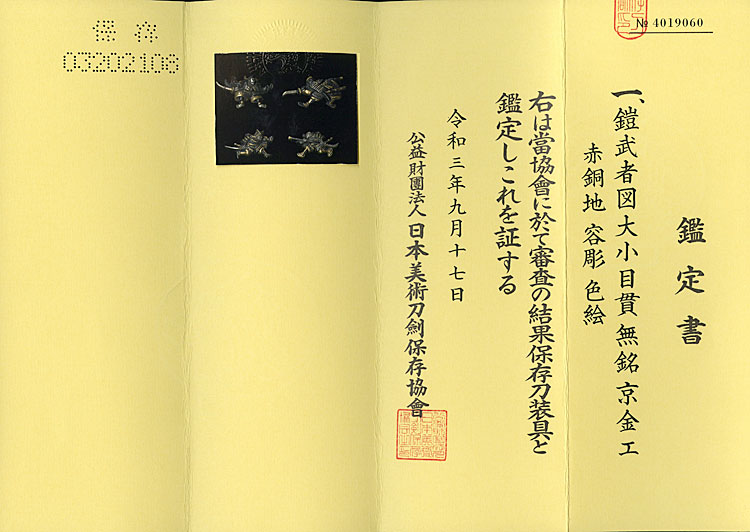 № 4019060
鑑定書
一、鎧武者図大小目貫 無銘 京金工
赤銅地 容彫 色絵
右は當協會に於て審査の結果保存刀装具と
鑑定しこれを証する
令和三年九月十七日
公益財團法人 日本美術刀劍保存協會
保存
03202108